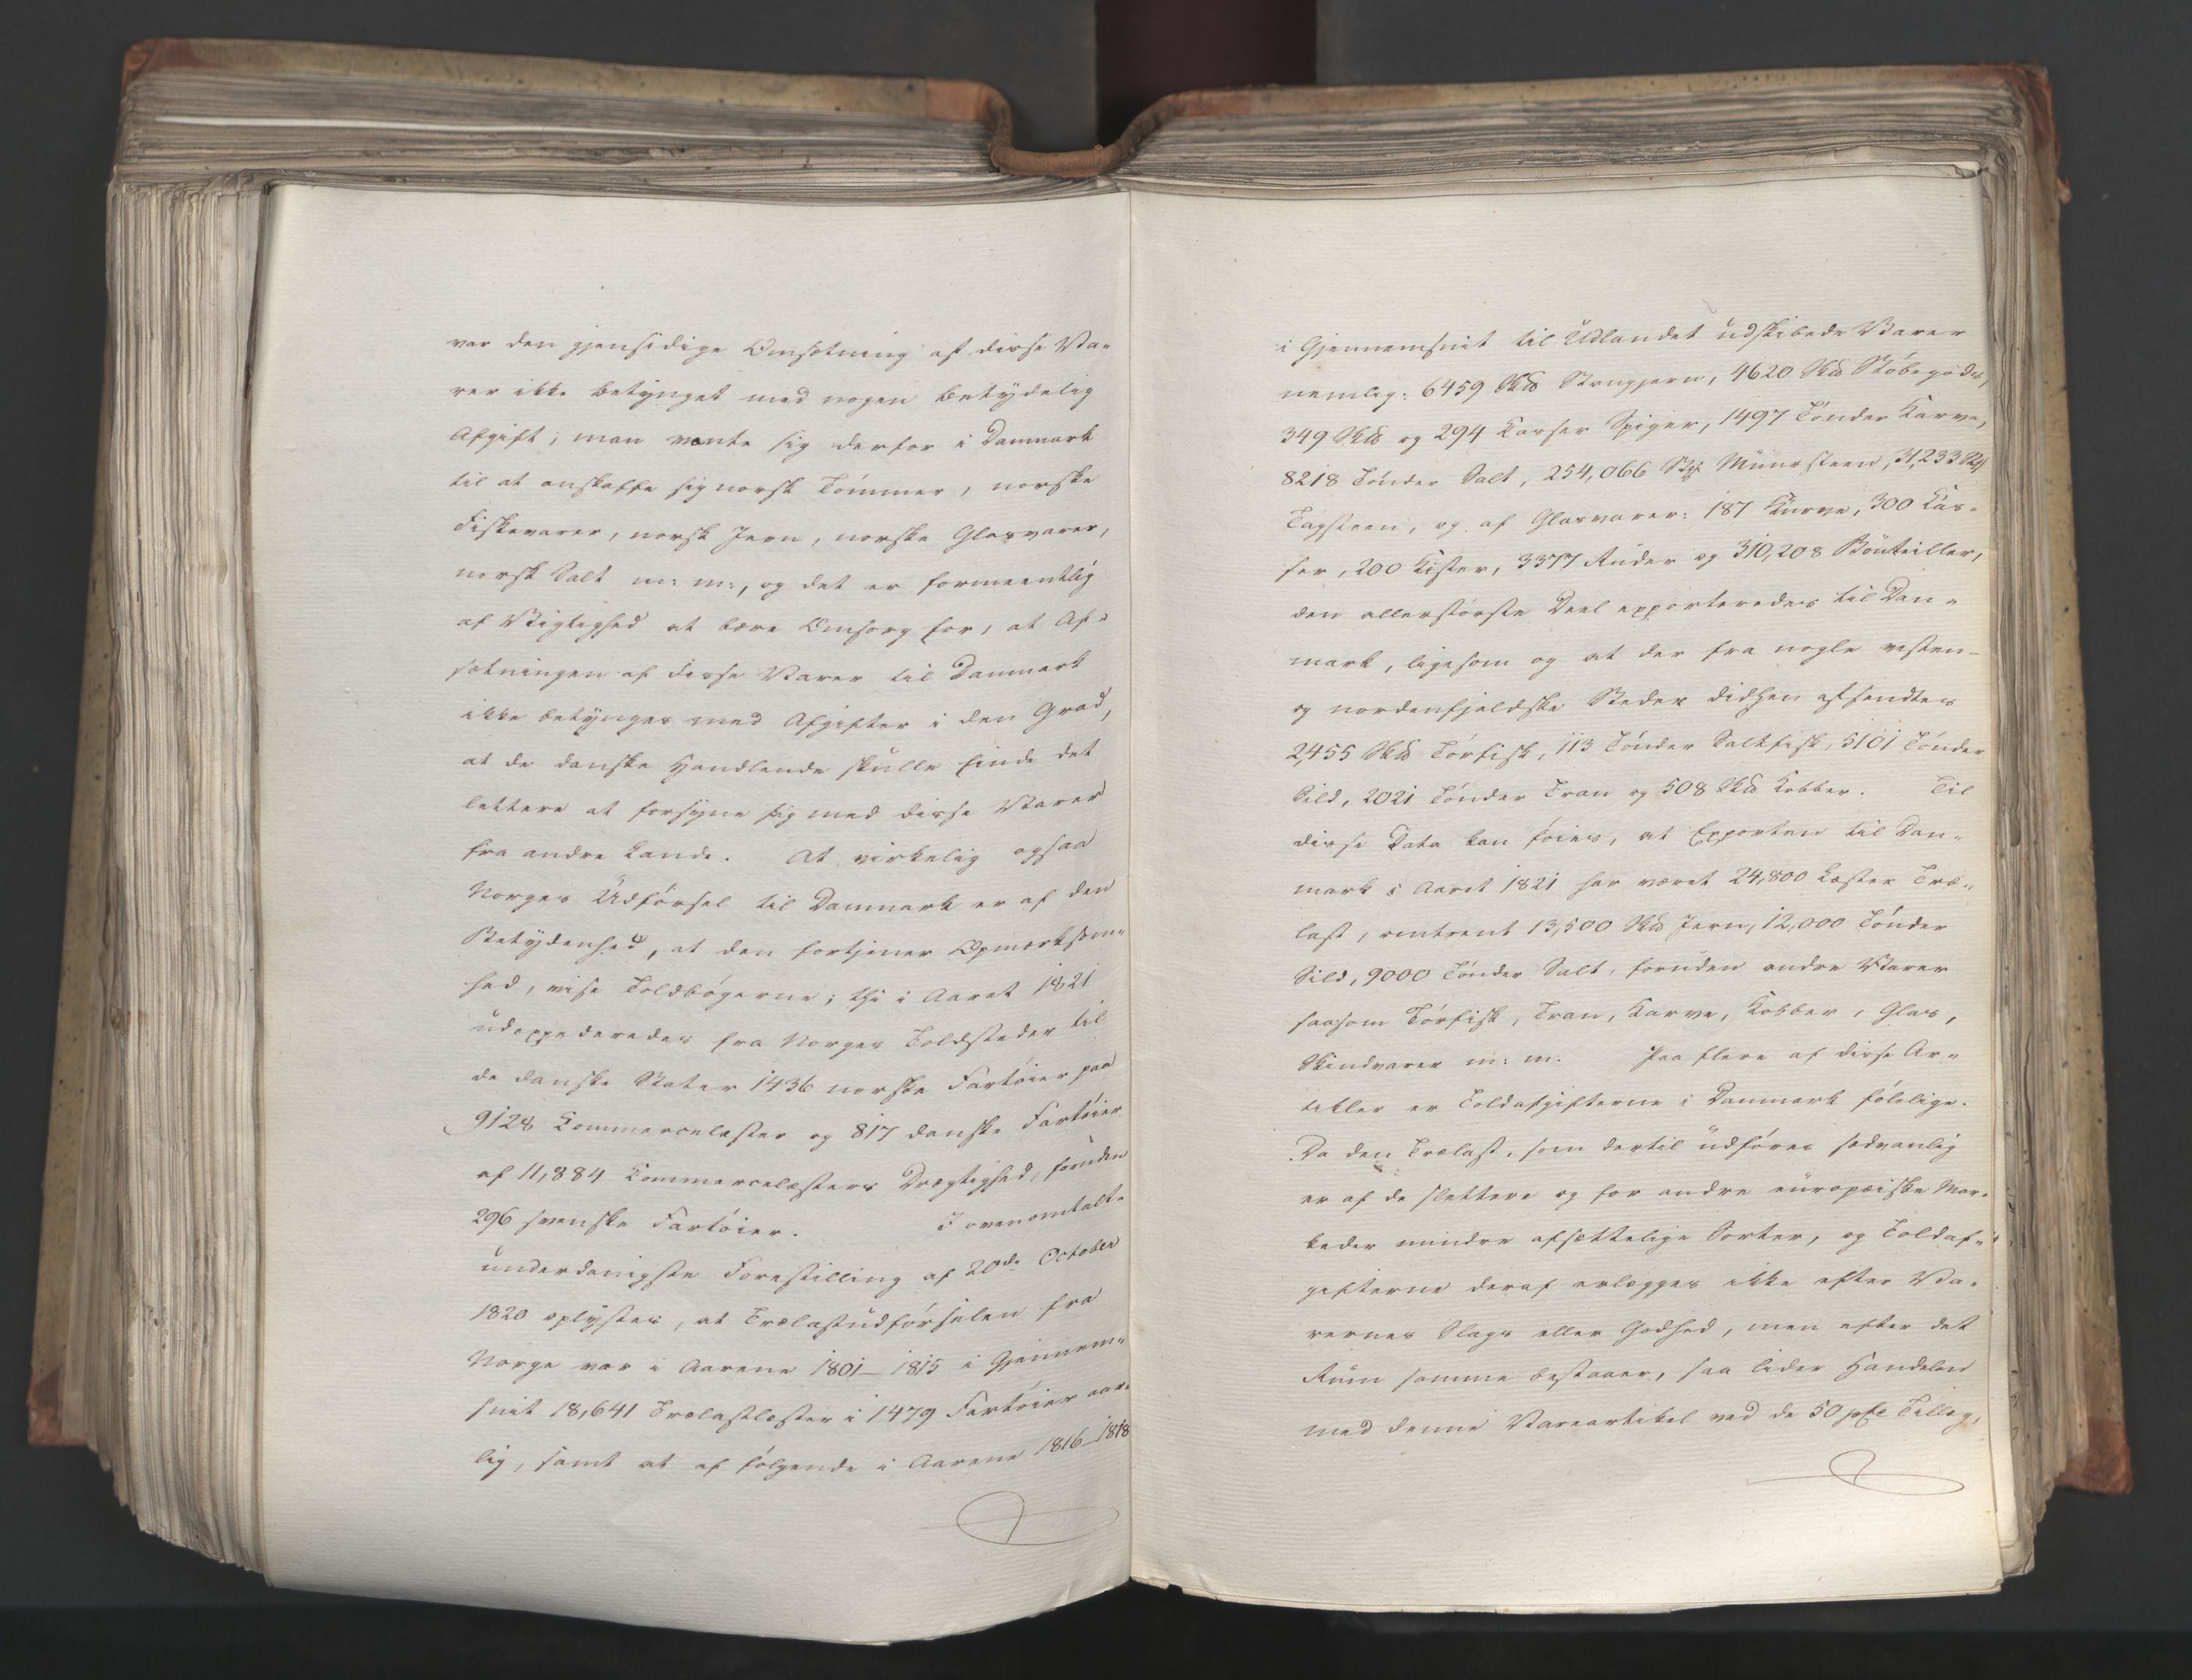 var den gjensidige Omsætning af disse Va-
rer ikke betynget med nogen betydelig
Afgift; man vænte sig derfor i Danmark
til at anskaffe sig norsk Tømmer, norske
Fiskevarer, norsk Jern, norske Glasvarer,
norsk Salt m: m:, og det er formeentlig
af Vigtighed at bære Omsorg for, at Af-
sætningen af disse Varer til Danmark
ikke betynges med Afgifter i den Grad,
at de danske Handlende skulle finde det
lettere at forsyne sig med disse Varer
fra andre Lande. At virkelig ogsaa
Norges Udførsel til Danmark er af den
Betydenhed, at den fortjener Opmærksom-
hed, vise Toldbøgerne; thi i Aaret 1821
udexpederedes fra Norges Toldsteder til
de danske Stater 1436 norske Fartøier paa
9128 Commercelæster og 817 danske Fartøier
af 11,884 Commercelæsters Drægtighed, foruden
296 svenske Fartøier. I ovenomtalte
underdanigste Forestilling af 20de October
1820 oplystes, at Trælastudførselen fra
Norge var i Aarene 1801–1815 i Gjennem-
snit 18,641 Trælastlæster i 1479 Fartøier aar-
lig, samt at af følgende i Aarene 1816–1818
i Gjennemsnit til Udlandet udskibede Varer
nemlig: 6459 Skd Stangjern, 4620 Skd Støbegods,
349 Skd og 294 Casser Spiger, 1497 Tønder Karve,
8218 Tønder Salt, 254,066 Stk Muursteen, 31,233 Stk
Tagsteen, og af Glasvarer: 187 Kurve, 300 Kas-
ser, 200 Kister, 3377 Ruder og 310,208 Bouteiller,
den allerstørste Deel exporteredes til Dan-
mark, ligesom og at der fra nogle vesten-
og nordenfjeldske Steder didhen afsendtes
2,455 Skd Tørfisk, 113 Tønder Saltfisk, 5101 Tønder
Sild, 2021 Tønder Tran og 508 Skd Kobber. Til
disse Data kan føies, at Exporten til Dan-
mark i Aaret 1821 har været 24,800 Læster Træ-
last, omtrent 13,500 Skd Jern, 12,000 Tønder
Sild, 9000 Tønder Salt, foruden andre Varer
saasom Tørfisk, Tran, Karve, Kobber, Glas,
Skindvarer m: m: Paa flere af disse Ar-
tikler er Toldafgifterne i Danmark følelige.
Da den Trælast, som dertil udføres sædvanlig
er af de slettere og for andre europæiske Mar-
keder mindre afsættelige Sorter, og Toldaf-
gifterne deraf erlægges ikke efter Va-
rernes Slags eller Godhed, men efter det
Rum samme bestaaer, saa lider Handelen
med denne Vareartikel ved de 50 pCt Tillæg,